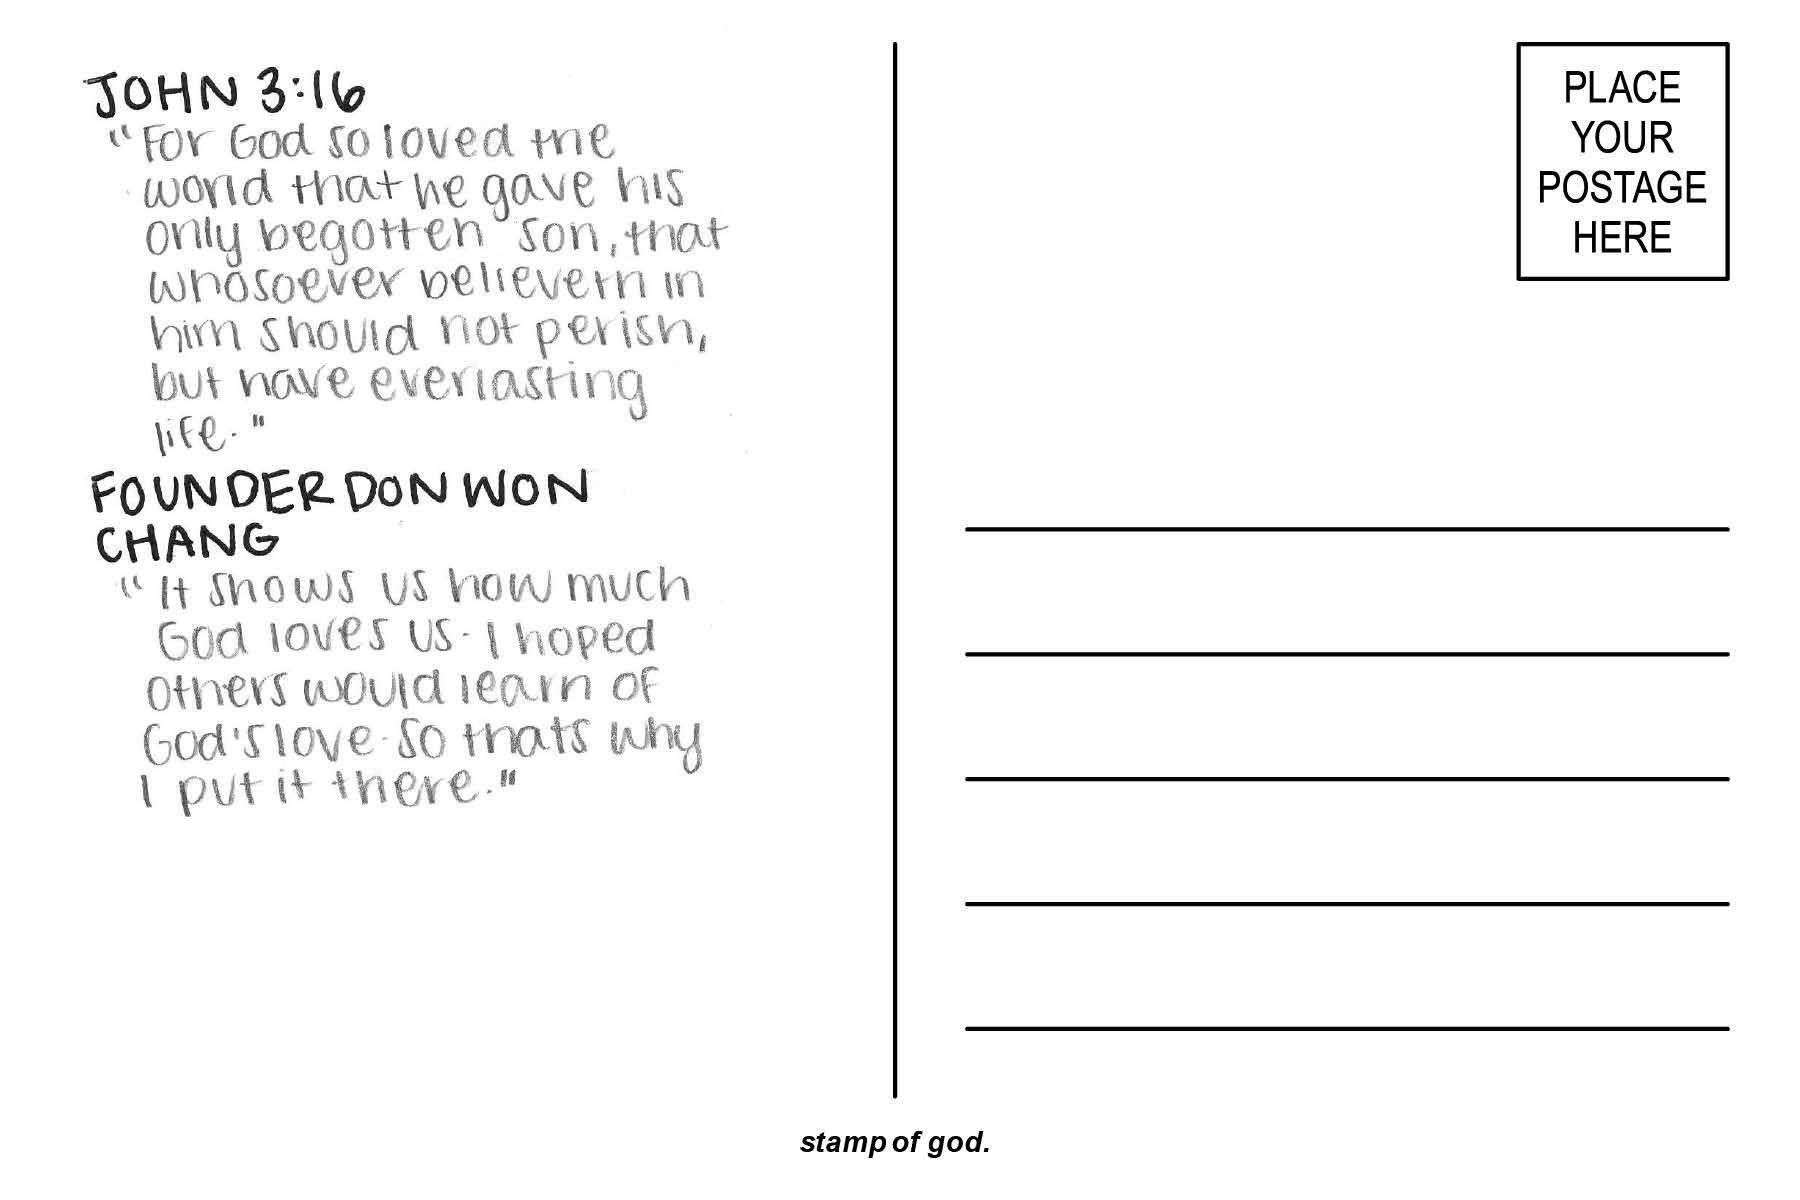 JOHN 3:16
"For God so loved the
world that he gave his
only begotten son, that
whosoever believeth in
him should not perish,
but have everlasting
life."
FOUNDER DON WON
CHANG
"It shows us how much
God loves us. I hoped
others would learn of
God's love. So thats why
I put it there."
PLACE
YOUR
POSTAGE
HERE
stamp of god.